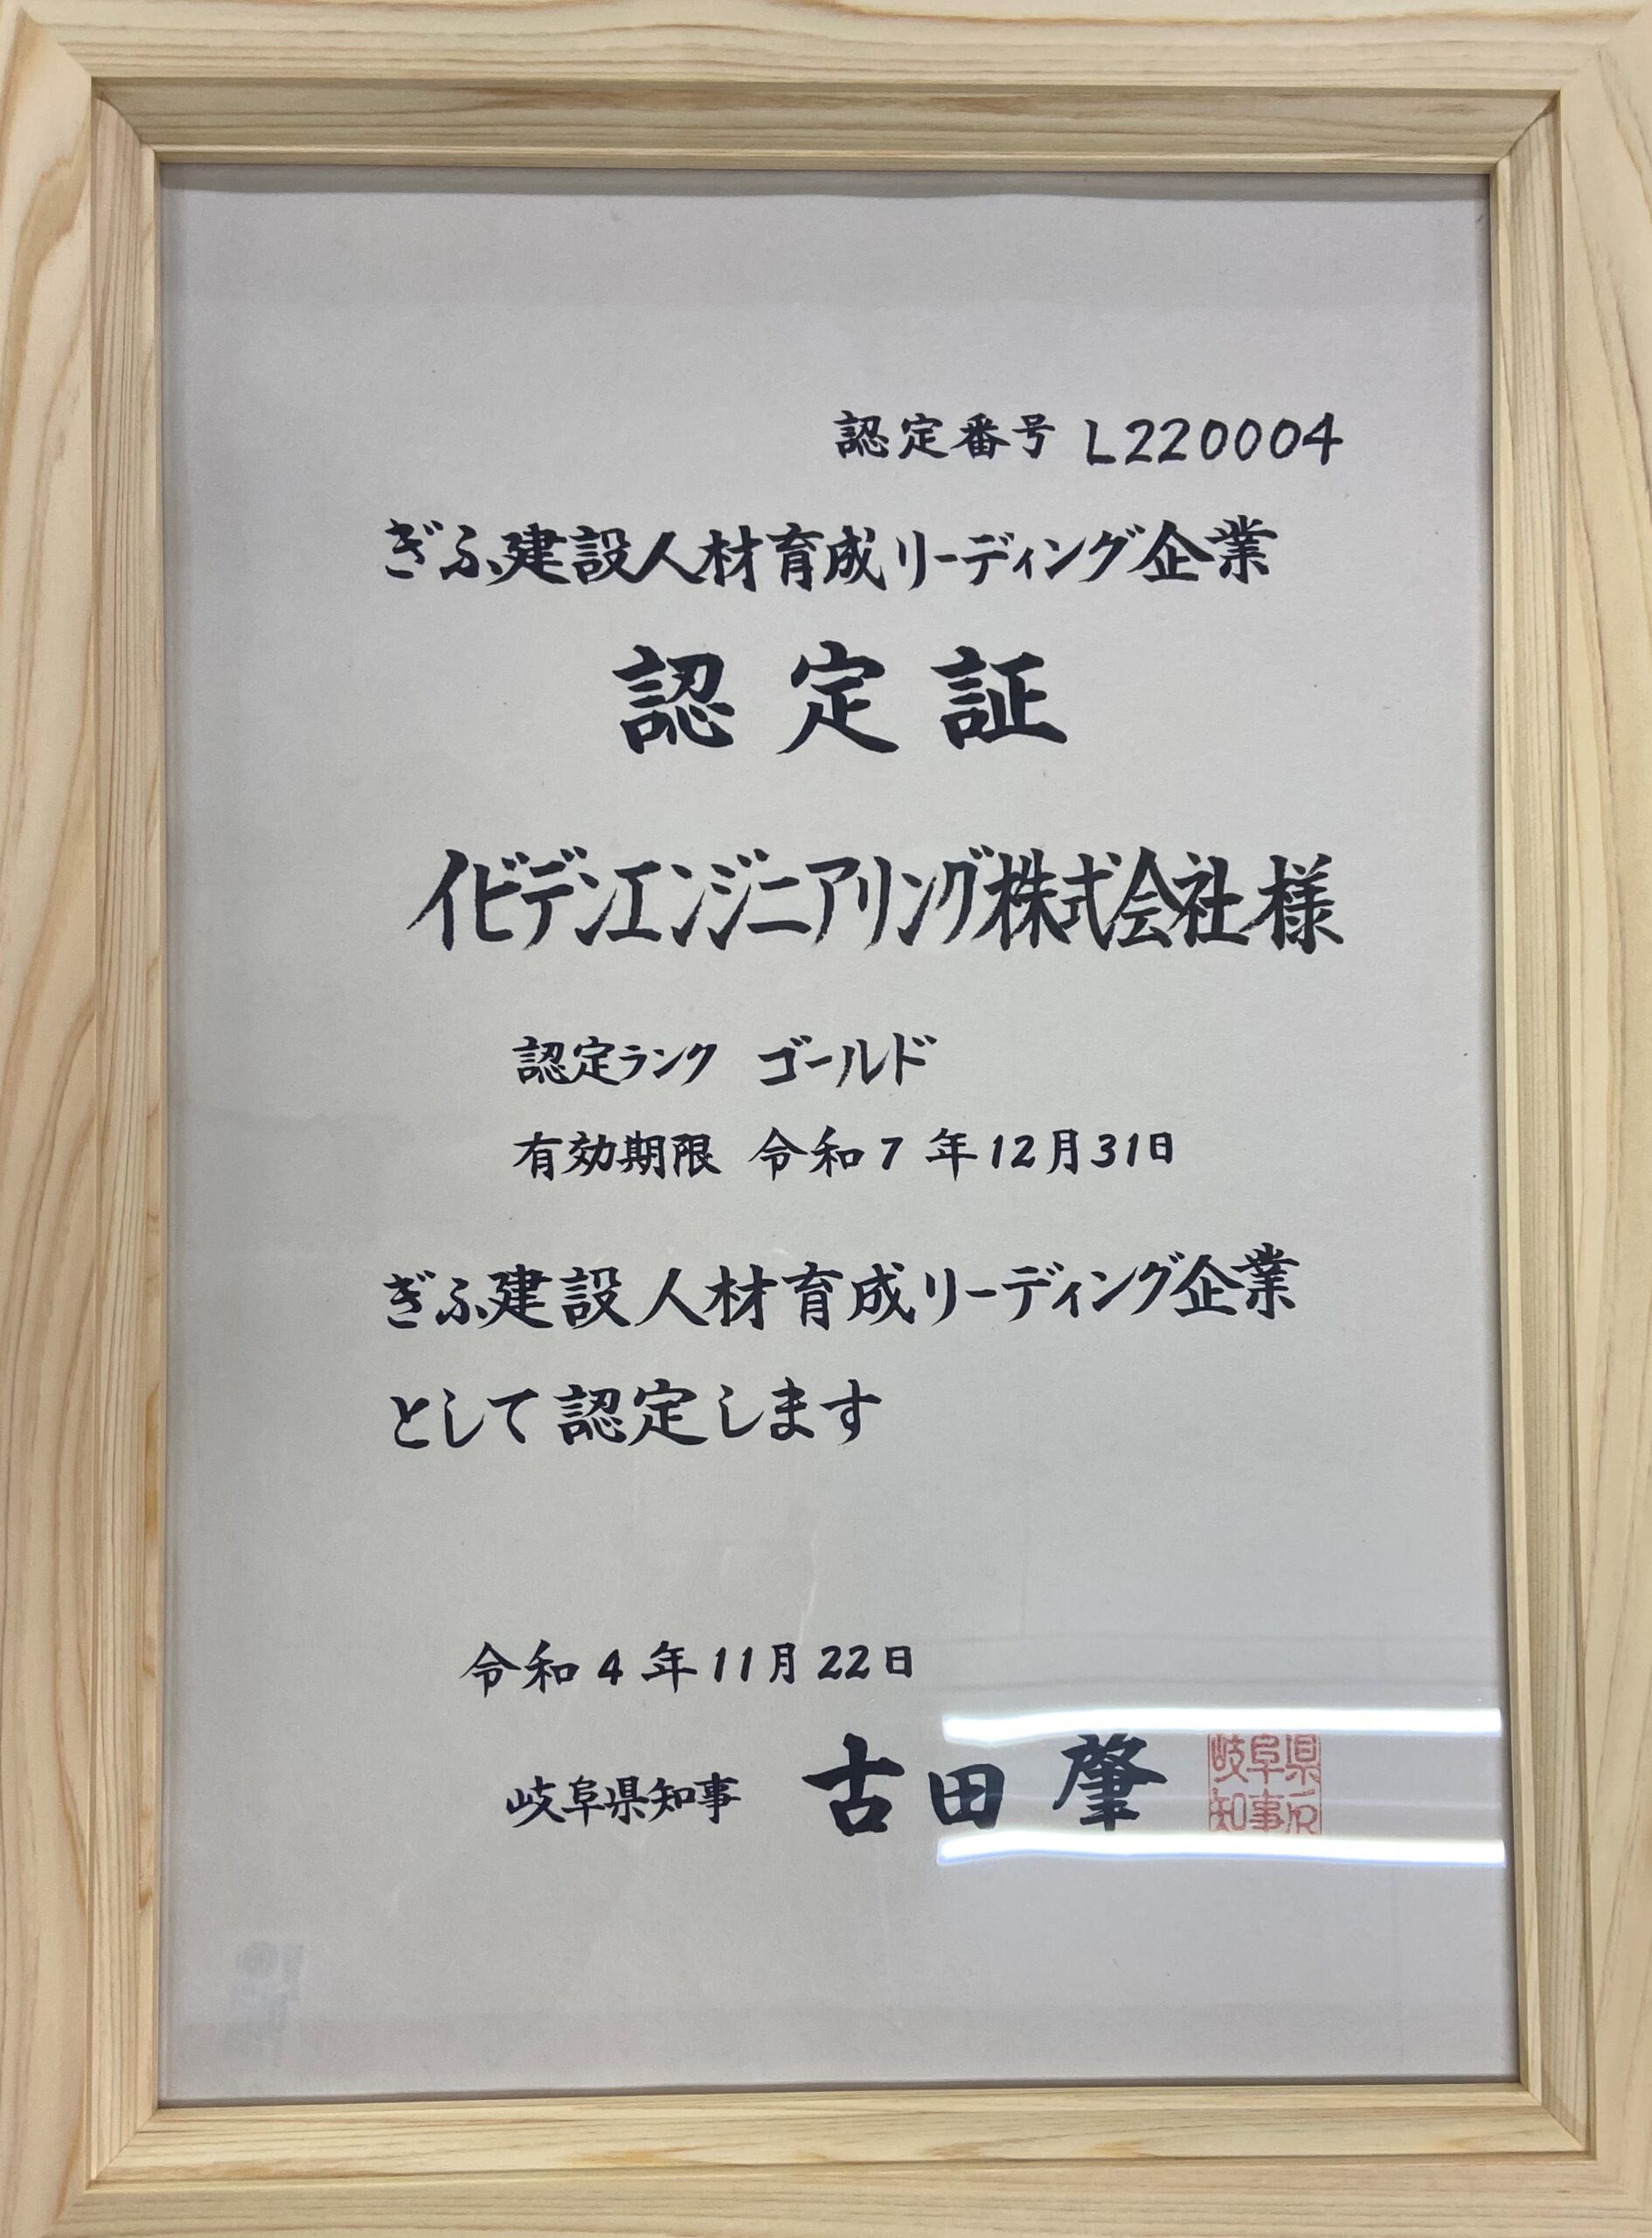 認定番号 L220004
ぎふ建設人材育成リーディング企業
認定証
イビデンエンジニアリング株式会社 様
認定ランク ゴールド
有効期限 令和7年12月31日
ぎふ建設人材育成リーディング企業
として認定します
令和4年11月22日
岐阜県知事 古田 肇
岐阜県
知事印